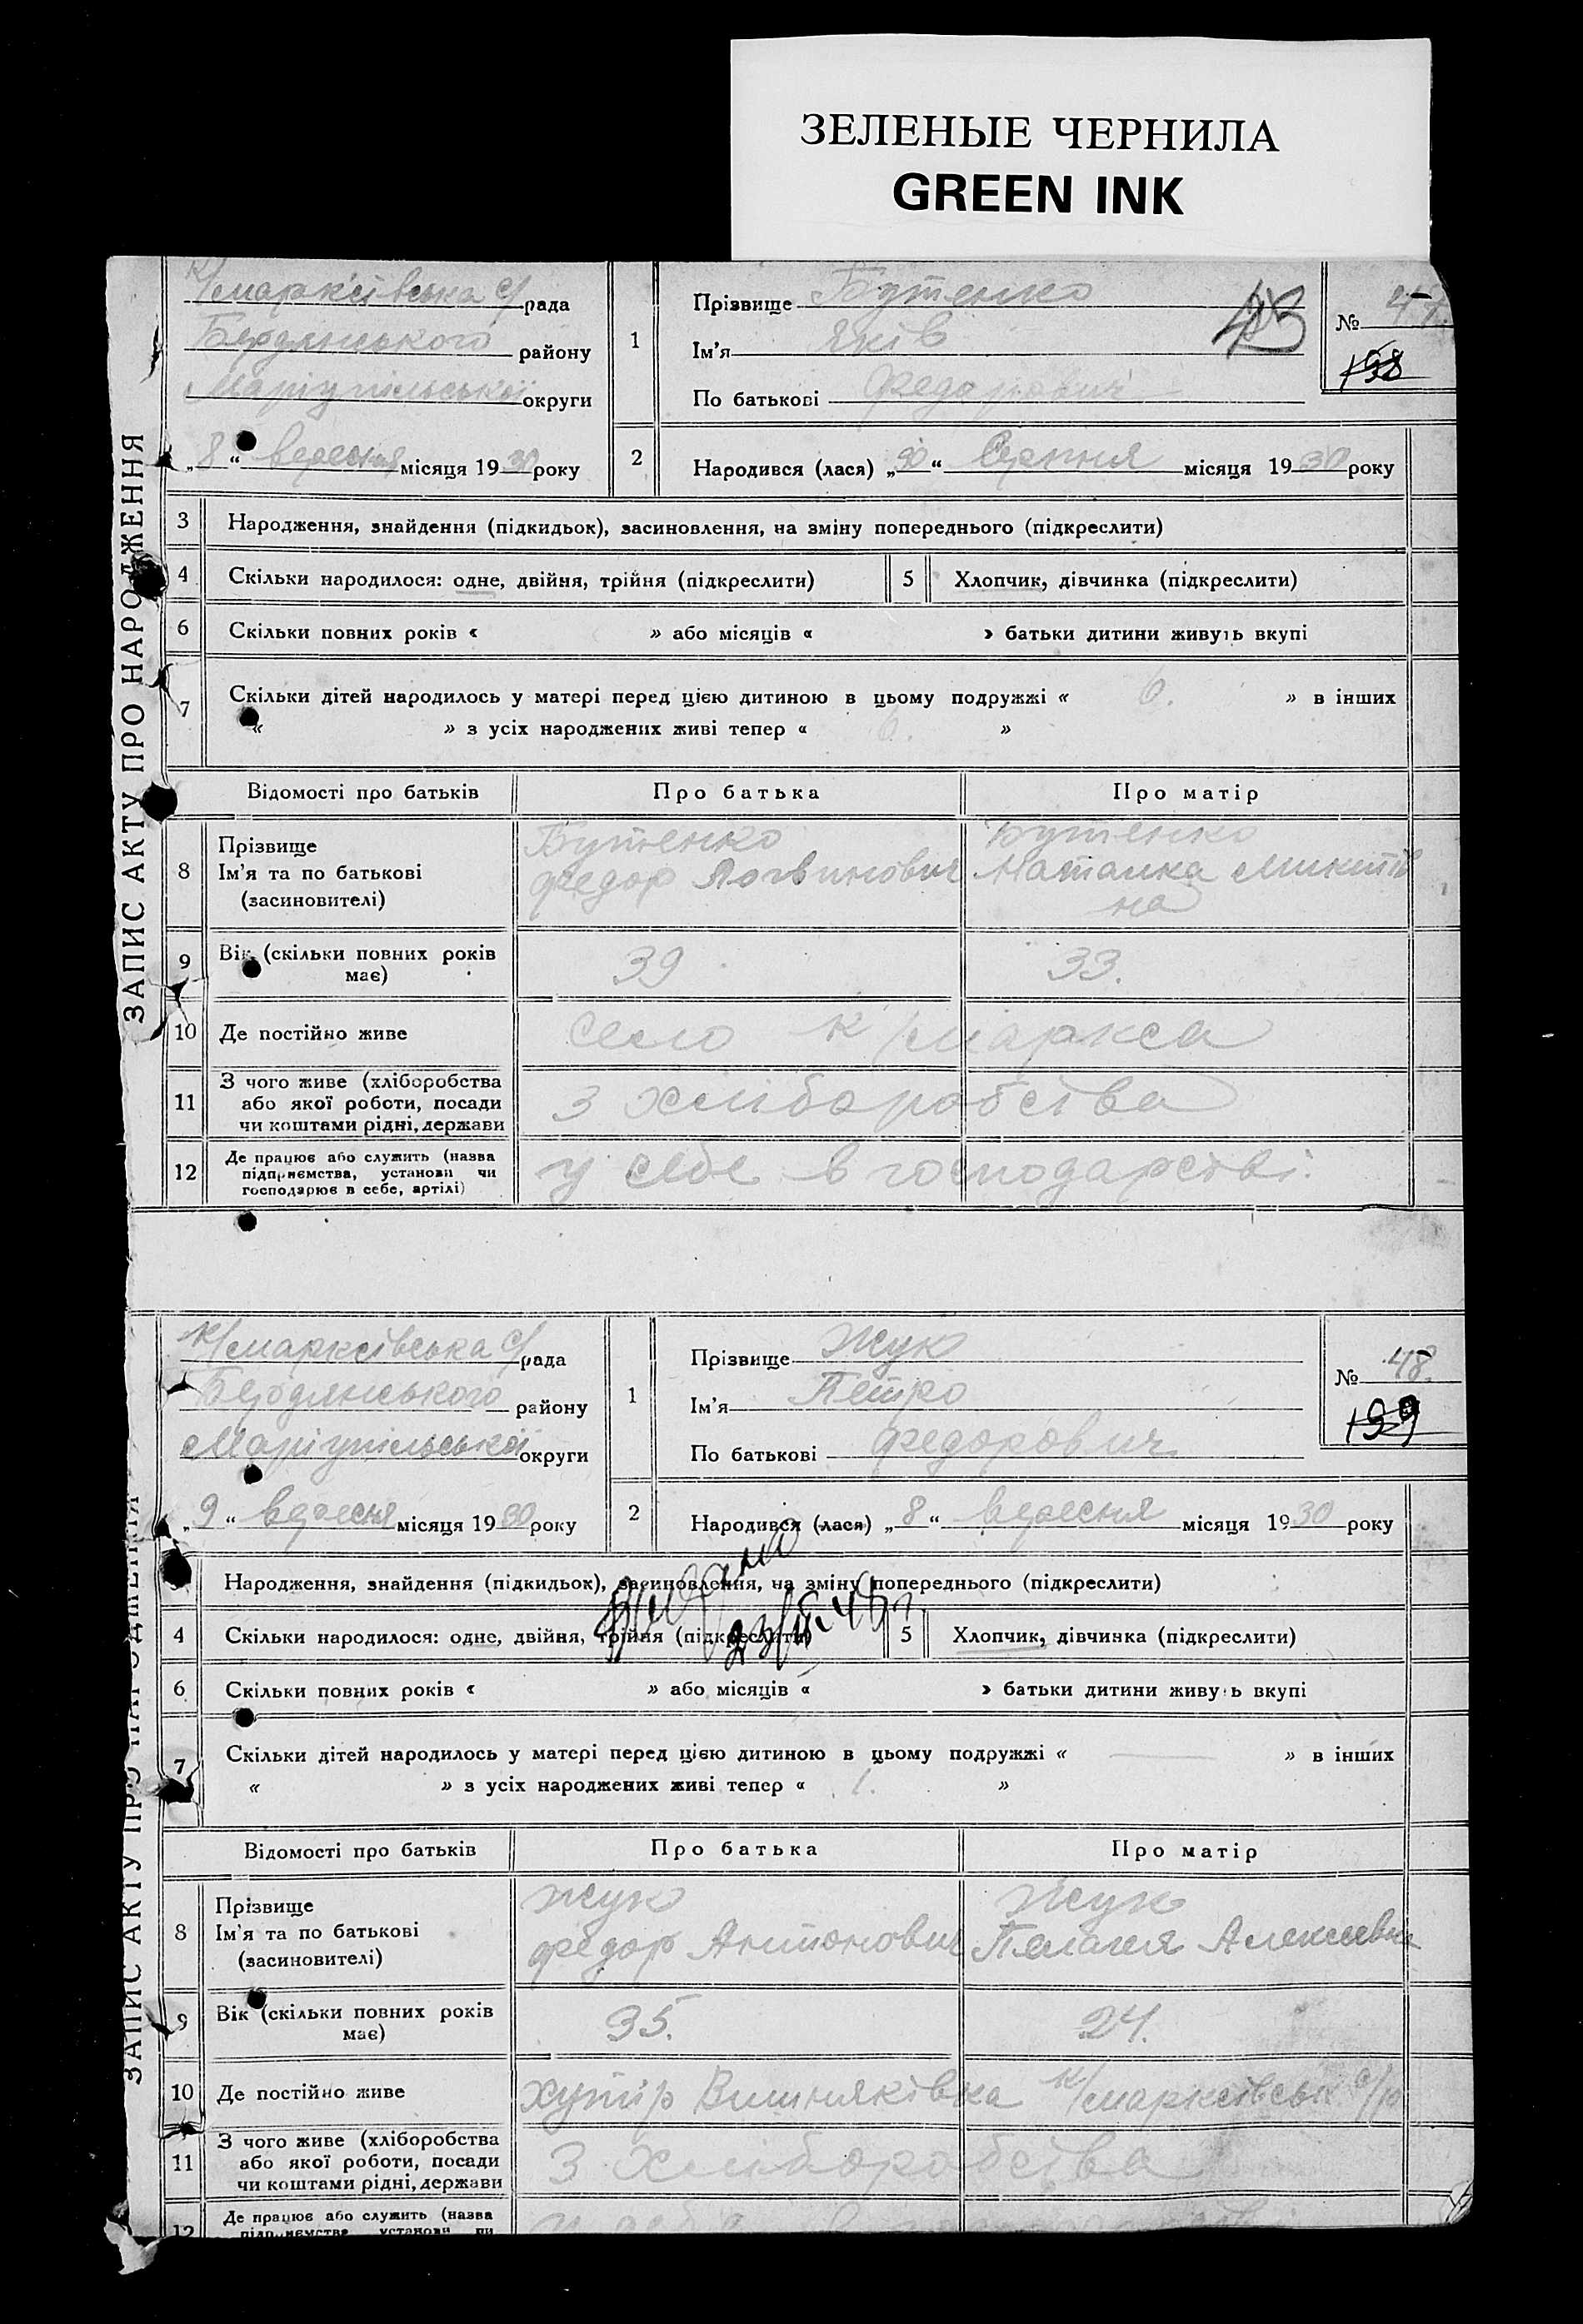 ЗЕЛЕНЫЕ ЧЕРНИЛА
GREEN INK
ЗАПИС АКТУ ПРО НАРОДЖЕННЯ
К/марксівська с/рада
Бердянського району
Маріупільської округи
„8“ вересня місяця 1930 року
1
Прізвище Бутенко
Ім'я Яків
По батькові Федорович
№ 47.
198
2
Народився (лася) „30“ Серпня місяця 1930 року
3 Народження, знайдення (підкидьок), засиновлення, на зміну попереднього (підкреслити)
4 Скільки народилося: одне, двійня, трійня (підкреслити) 5 Хлопчик, дівчинка (підкреслити)
6 Скільки повних років « » або місяців « » батьки дитини живуть вкупі
7 Скільки дітей народилось у матері перед цією дитиною в цьому подружжі « 6. » в інших
« » з усіх народжених живі тепер « 6. »
Відомості про батьків Про батька Про матір
8 Прізвище Бутенко Бутенко
Ім'я та по батькові Федор Логвинович Наталка Микитів
(засиновителі) на
9 Вік (скільки повних років має) 39 33.
10 Де постійно живе село К/маркса
11 З чого живе (хліборобства
або якої роботи, посади з хліборобства
чи коштами рідні, держави
12 Де працює або служить (назва
підприємства, установи чи у себе в господарстві.
господарює в себе, артілі)
ЗАПИС АКТУ ПРО НАРОДЖЕННЯ
К/марксівська с/рада
Бердянського району
Маріупільської округи
„9“ вересня місяця 1930 року
1
Прізвище Жук
Ім'я Петро
По батькові Федорович
№ 48.
199
2
Народився (лася) „8“ вересня місяця 1930 року
Народження, знайдення (підкидьок), засиновлення, на зміну попереднього (підкреслити)
4 Скільки народилося: одне, двійня, трійня (підкреслити) 5 Хлопчик, дівчинка (підкреслити)
6 Скільки повних років « » або місяців « » батьки дитини живуть вкупі
7 Скільки дітей народилось у матері перед цією дитиною в цьому подружжі « — » в інших
« » з усіх народжених живі тепер « 1. »
Відомості про батьків Про батька Про матір
8 Прізвище Жук Жук
Ім'я та по батькові Федор Антонович Пелагея Алексеевна
(засиновителі)
9 Вік (скільки повних років має) 35. 24.
10 Де постійно живе хутір Вишняківка К/марксівськ с/р
11 З чого живе (хліборобства
або якої роботи, посади з хліборобства
чи коштами рідні, держави
12 Де працює або служить (назва
підприємства, установи чи